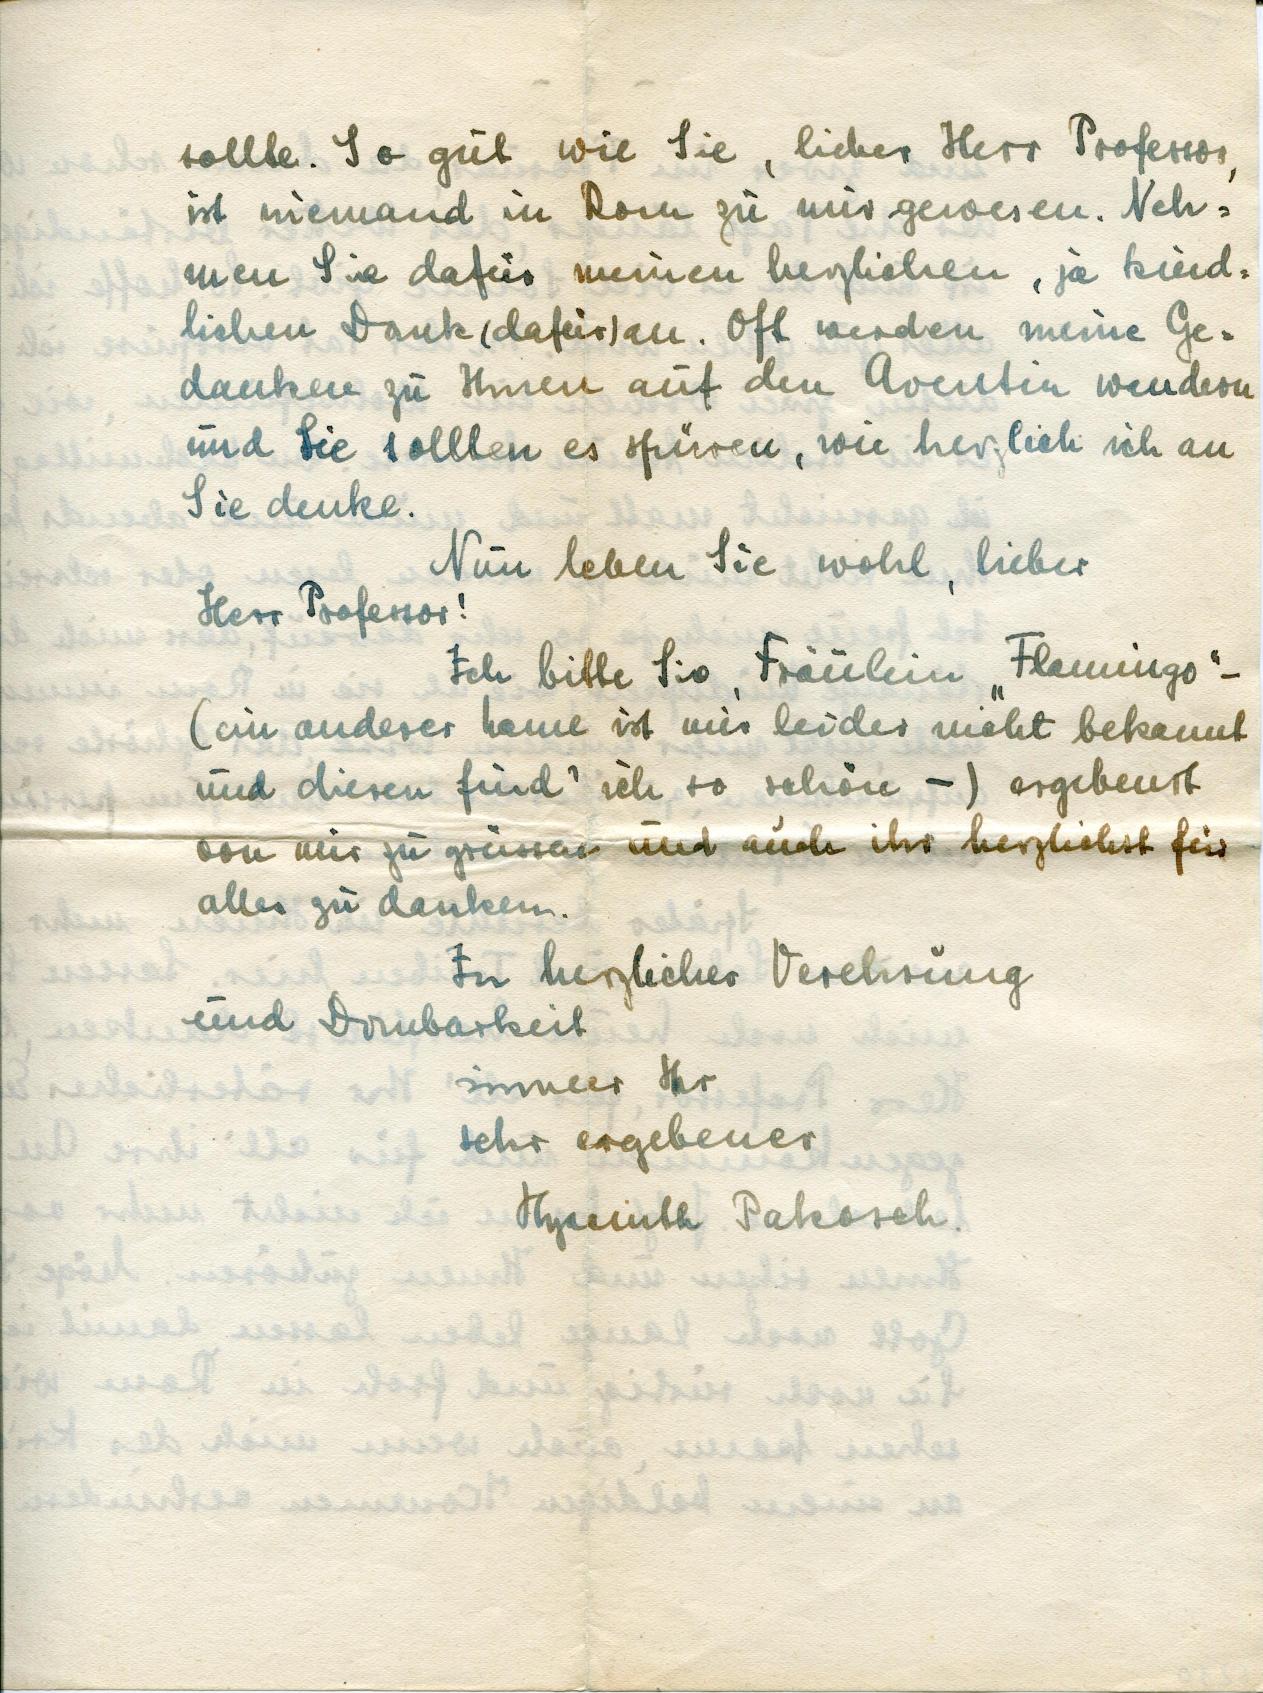 sollte. So gut wie Sie, lieber Herr Professor,
ist niemand in Rom zu mir gewesen. Neh=
men Sie dafür meinen herzlichen, ja kind=
lichen Dank (dafür) an. Oft werden meine Ge=
danken zu Ihnen auf den Aventin wandern
und Sie sollten es spüren, wie herzlich ich an
Sie denke.
Nun leben Sie wohl, lieber
Herr Professor!
Ich bitte Sie, Fräulein „Flamingo“ –
(ein anderer Name ist mir leider nicht bekannt
und diesen find' ich so schön –) ergebenst
von mir zu grüssen und auch ihr herzlichst für
alles zu danken.
In herzlicher Verehrung
und Dankbarkeit
immer Ihr
sehr ergebener
Hyacinth Pakosch.